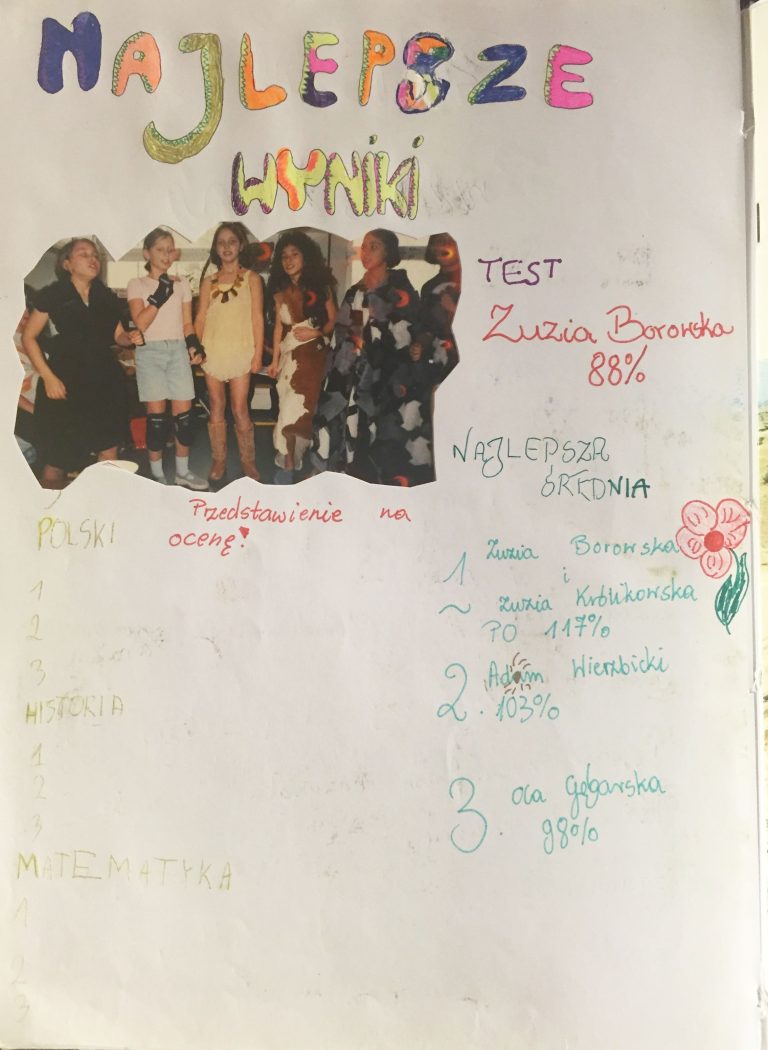 NAJLEPSZE
WYNIKI
TEST
Zuzia Borowska
88%
Przedstawienie na
ocenę!
NAJLEPSZA
ŚREDNIA
1 Zuzia Borowska
i
~ Zuzia Królikowska
PO 117%
2. Adam Wierzbicki
103%
3. Ola Gębarska
98%
POLSKI
1
2
3
HISTORIA
1
2
3
MATEMATYKA
1
2
3